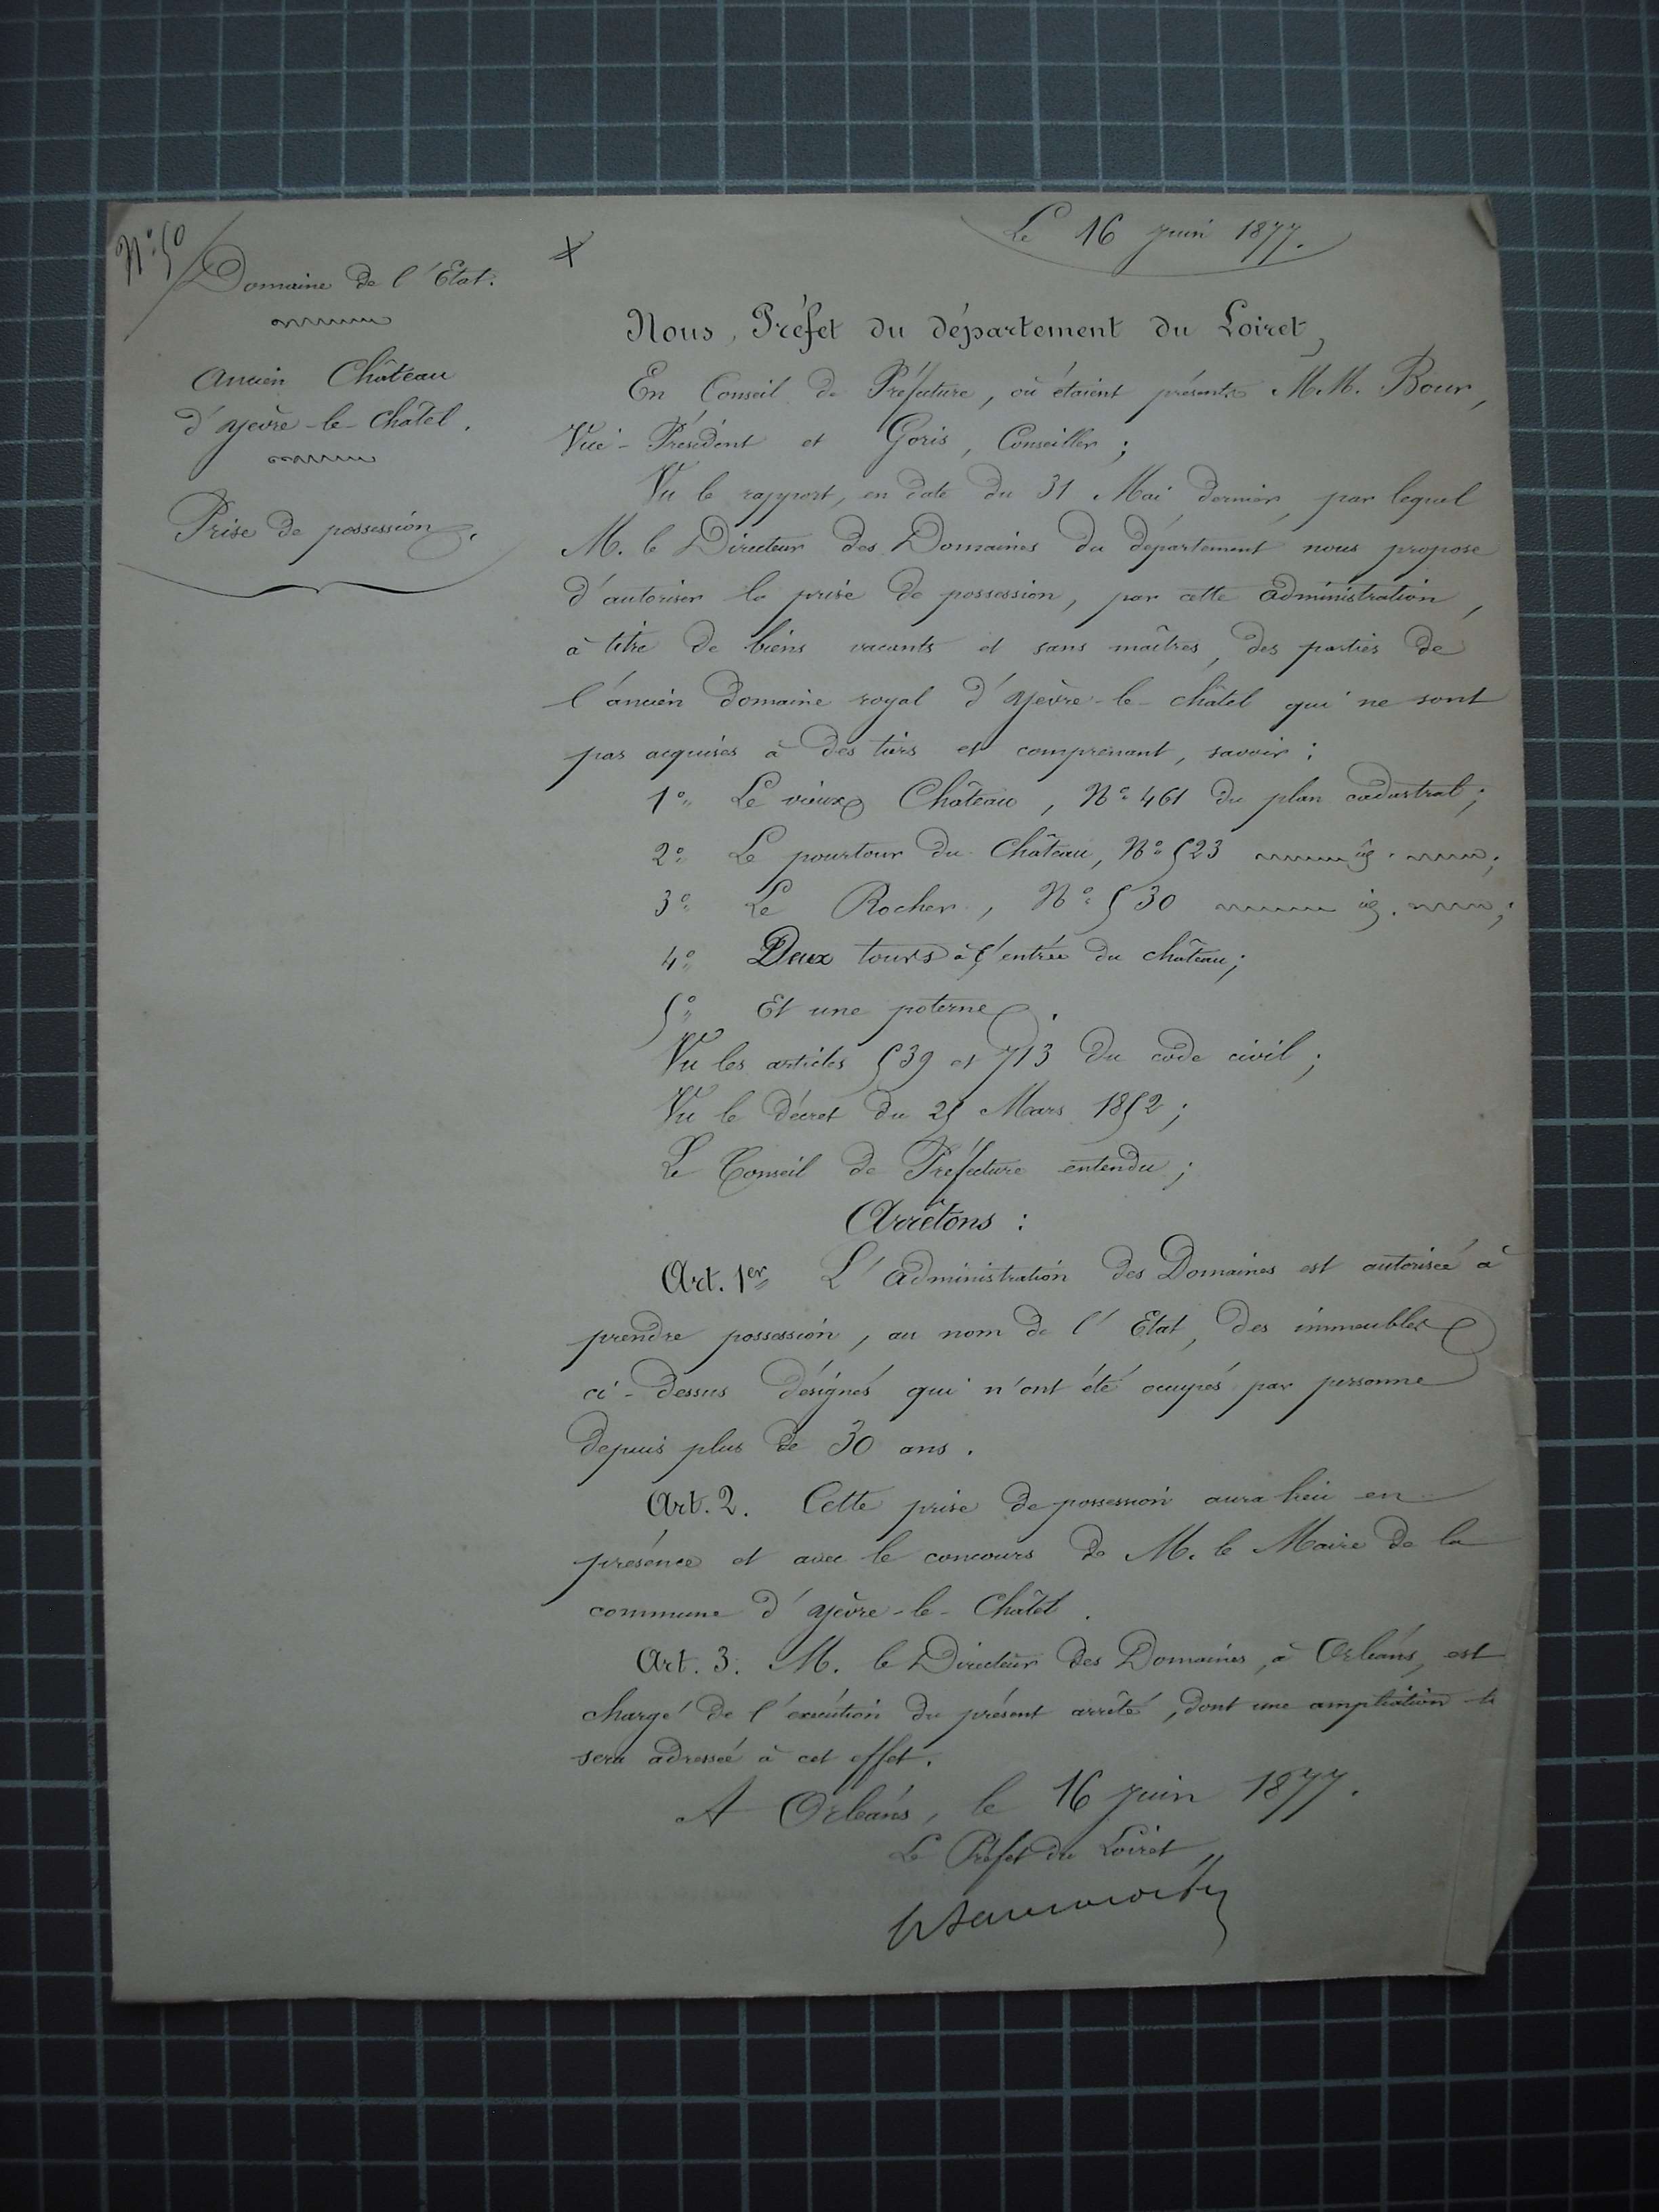 N° 50
Domaine de l'Etat.
Ancien Château
d'Yèvre-le-Châtel.
Prise de possession.
Le 16 Juin 1877.
Nous, Préfet du département du Loiret,
En Conseil de Préfecture, où étaient présents M.M. Bour,
Vice-Président et Goris, Conseiller;
Vu le rapport, en date du 31 Mai dernier, par lequel
M. le Directeur des Domaines du département nous propose
d'autoriser la prise de possession, par cette administration,
à titre de biens vacants et sans maîtres, des parties de
l'ancien domaine royal d'Yèvre-le-Châtel qui ne sont
pas acquises à des tiers et comprenant, savoir:
1° Le vieux Château, N° 461 du plan cadastral;
2° Le pourtour du Château, N° 523 id.;
3° Le Rocher, N° 530 id.;
4° Deux tours à l'entrée du château;
5° Et une poterne.
Vu les articles 539 et 713 du code civil;
Vu le décret du 25 Mars 1852;
Le Conseil de Préfecture entendu;
Arrêtons:
Art. 1er L'administration des Domaines est autorisée à
prendre possession, au nom de l'Etat, des immeubles
ci-dessus désignés qui n'ont été occupés par personne
depuis plus de 30 ans.
Art. 2. Cette prise de possession aura lieu en
présence et avec le concours de M. le Maire de la
commune d'Yèvre-le-Châtel.
Art. 3. M. le Directeur des Domaines, à Orléans, est
chargé de l'exécution du présent arrêté, dont une ampliation
sera adressée à cet effet.
A Orléans, le 16 Juin 1877.
Le Préfet du Loiret